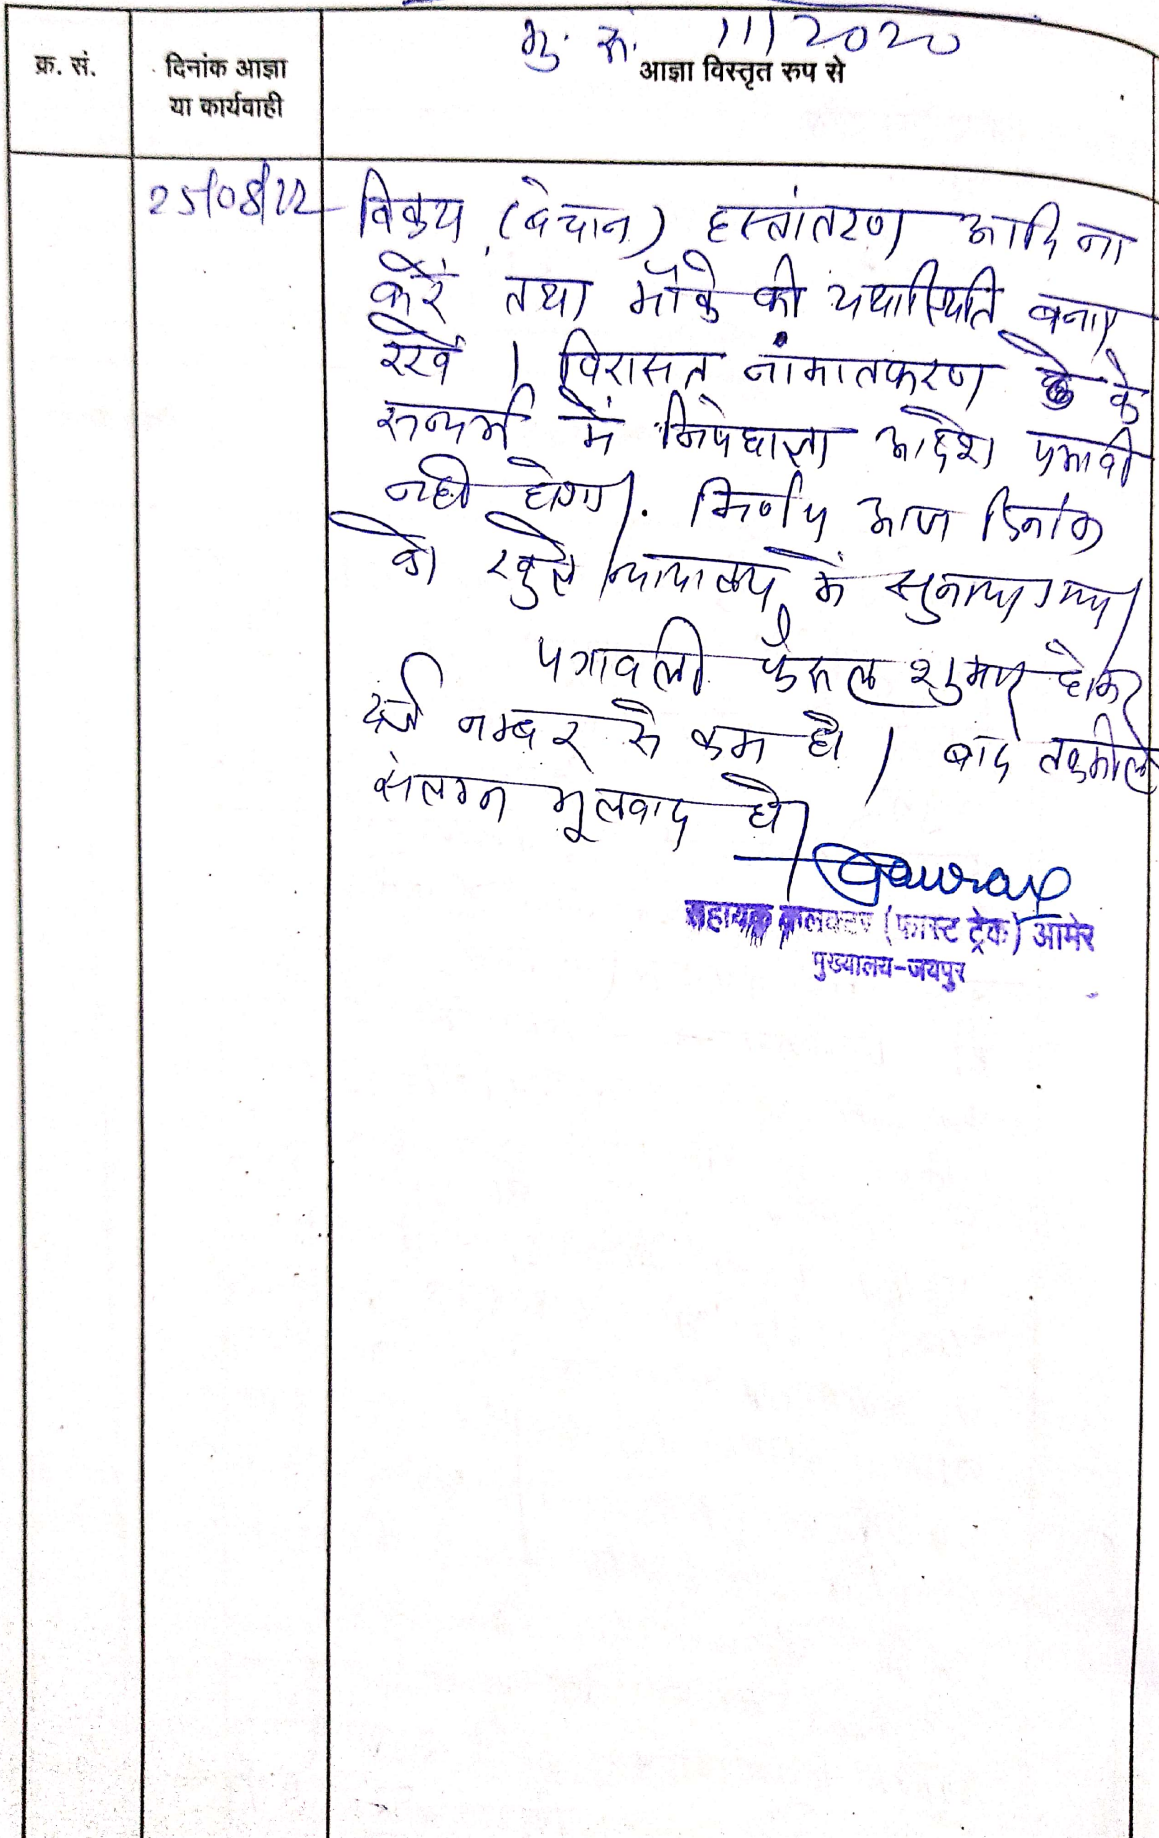 मु. सं. 111/2020
क्र. सं.
दिनांक आज्ञा
या कार्यवाही
आज्ञा विस्तृत रुप से
25/08/22
विक्रय (बेचान) हस्तांतरण आदि ना
करें तथा मौके की यथास्थिति बनाए
रखें । विरासत नामांतकरण के
सन्दर्भ में निषेधाज्ञा आदेश प्रभावी
नही होगा । निर्णय आज दिनांक
को खुले न्यायालय में सुनाया गया ।
पत्रावली फैसल शुमार होकर
दर्ज नम्बर से कम हो । बाद तकमील
संलग्न मूलवाद हो ।
Gaurav
सहायक कलक्टर (फास्ट ट्रेक) आमेर
मुख्यालय-जयपुर